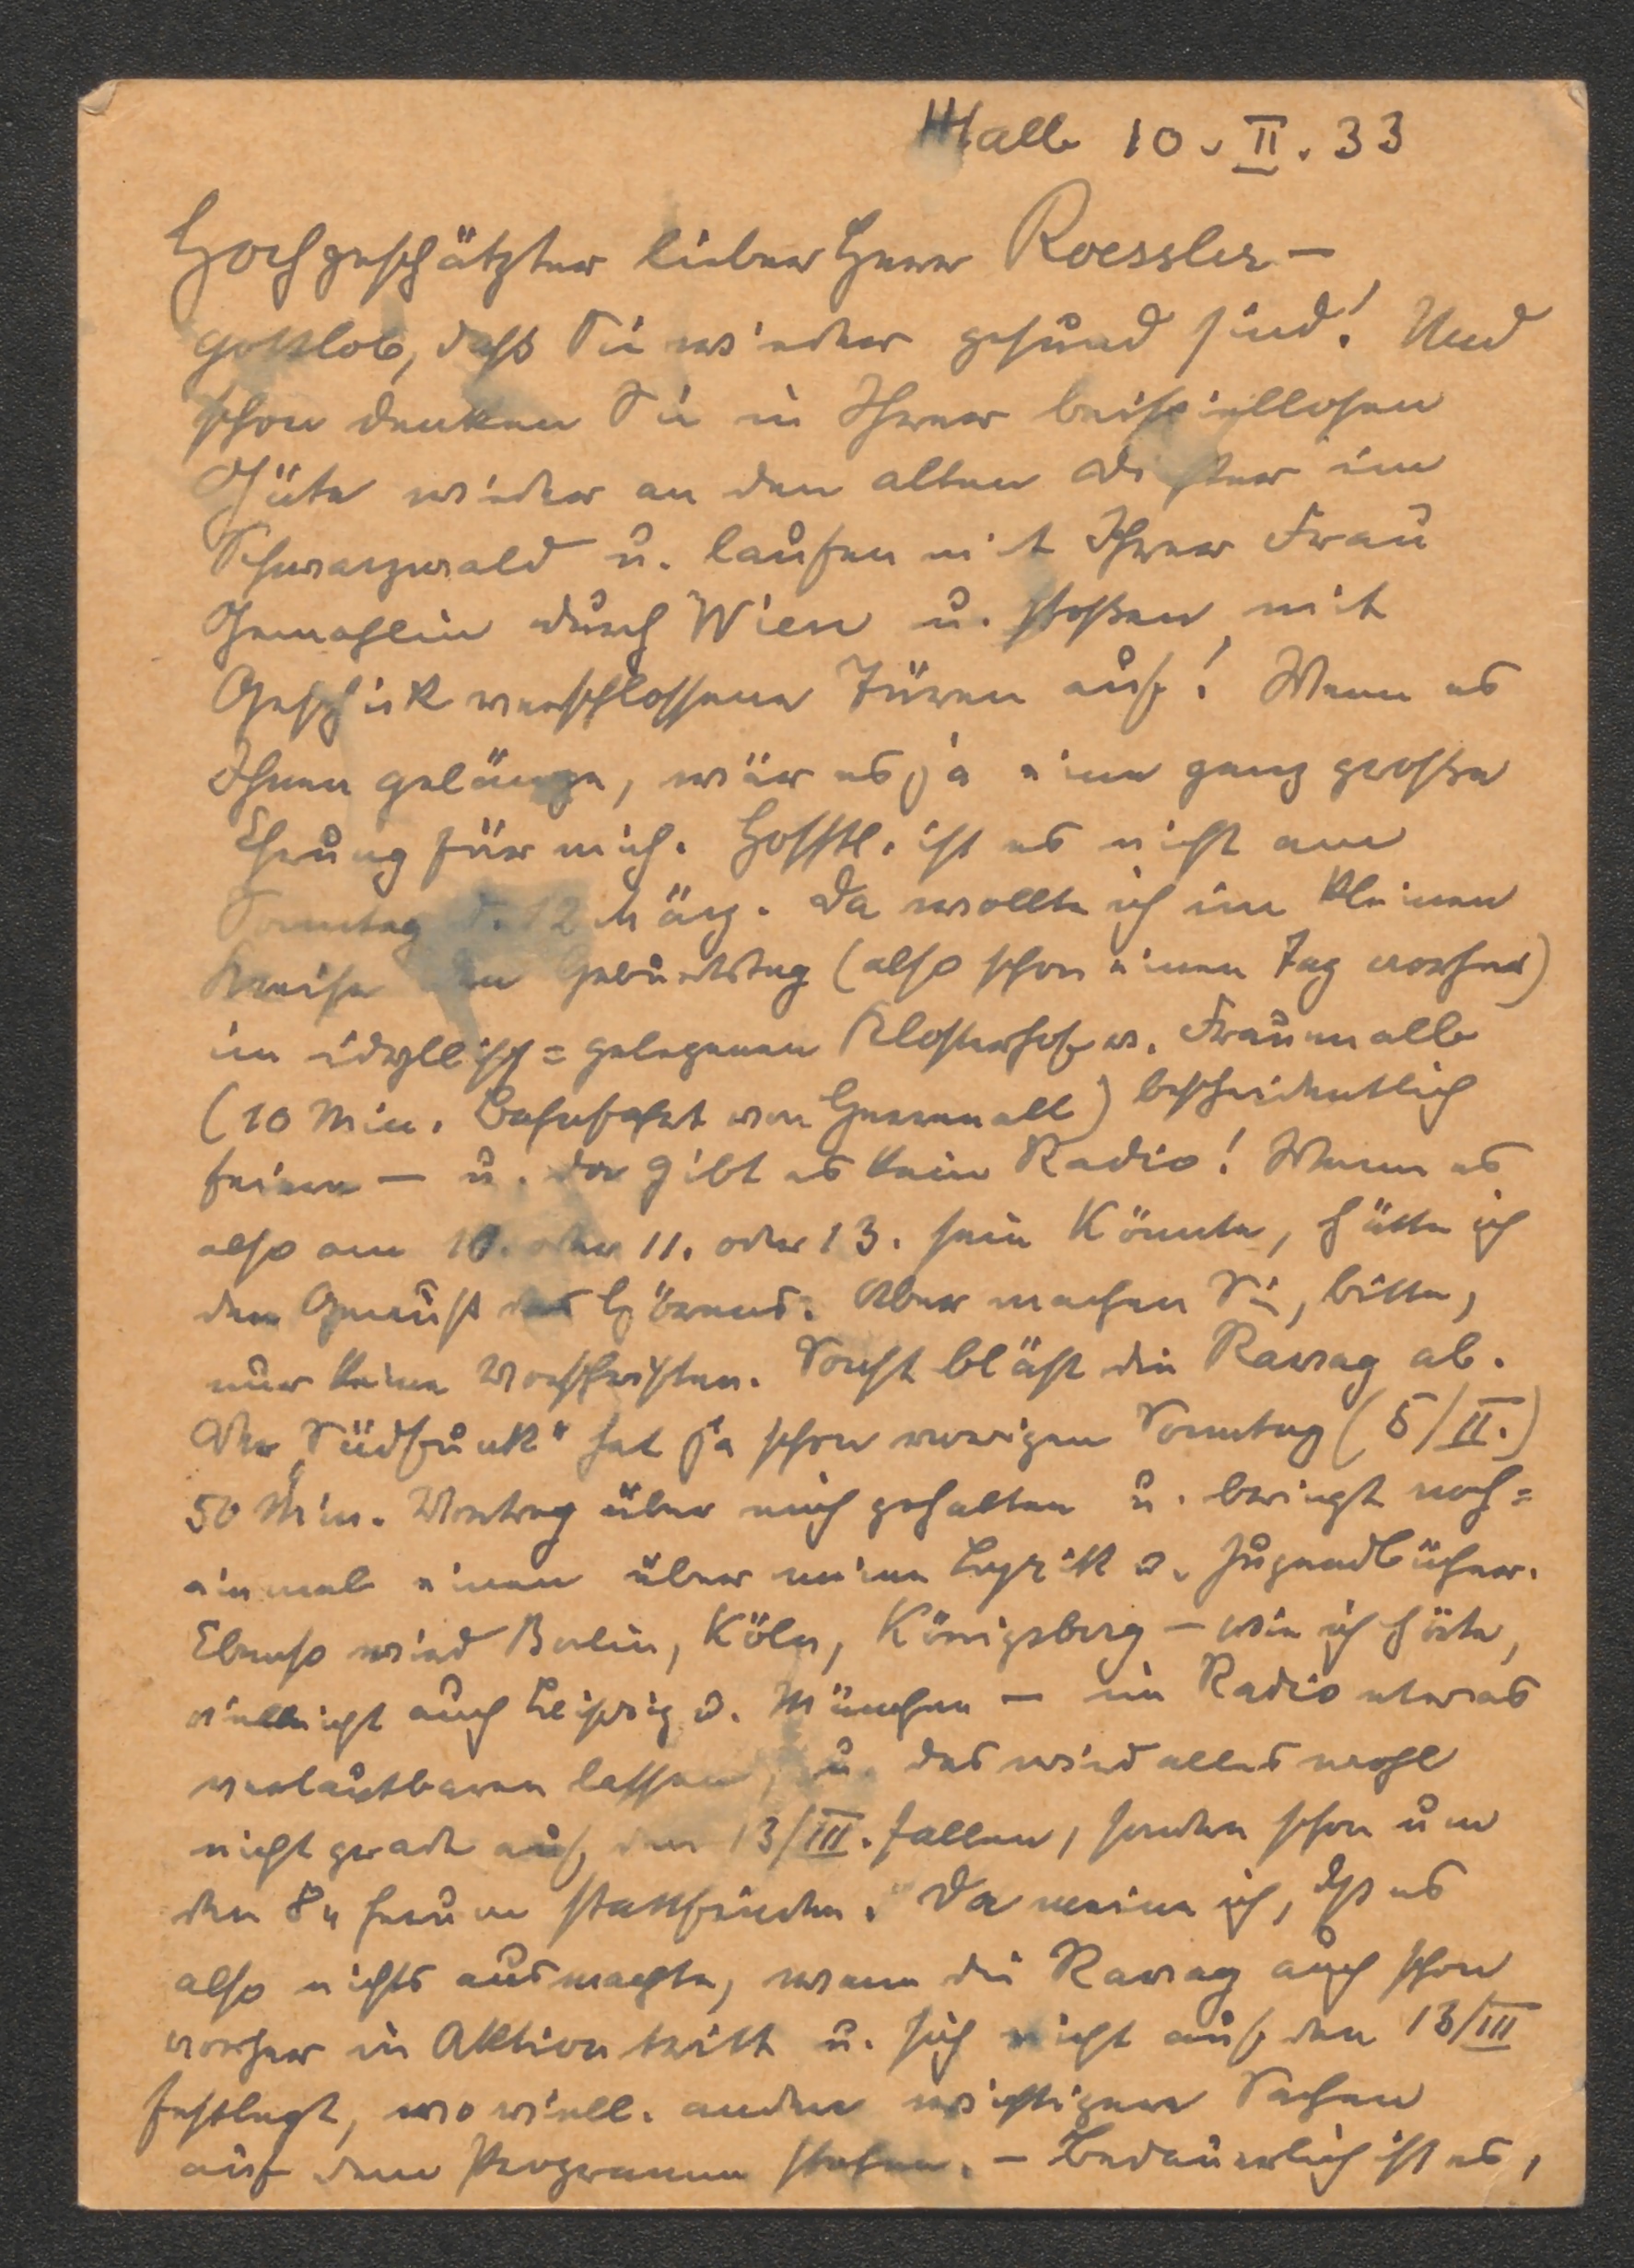 Halb 10. II. 33
Hochgeschätzter lieber Herr Roessler –
gottlob, daß Sie wieder gesund sind! Und
schon denken Sie in Ihrer beispiellosen
Güte wieder an den alten Dichter im
Schwarzwald u. laufen mit Ihrer Frau
Gemahlin durch Wien u. stoßen mit
Geschick verschlossene Türen auf! Wenn es
Ihnen gelänge, wär es ja eine ganz große
Ehrung für mich. Hofftl. ist es nicht am
Sonntag d. 12 März. Da wollte ich im kleinen
Kreise den Geburtstag (also schon einen Tag vorher)
im idyllisch=gelegenen Klosterhof v. Frauenalb
(10 Min. Bahnfahrt von Herrenalb) bescheidentlich
feiern – u. da gibt es kein Radio! Wenn es
also am 10. oder 11. oder 13. sein könnte, hätte ich
den Genuß des Hörens. Aber machen Sie, bitte,
nur keine Vorschriften. Sonst bläst die Ravag ab.
Der „Südfunk" hat ja schon vorigen Sonntag (5/II.)
50 Min. Vortrag über mich gehalten u. bringt noch=
einmal einen über meine Lyrik u. Jugendbücher.
Ebenso wird Berlin, Köln, Königsberg – wie ich hörte,
vielleicht auch Leipzig u. München – im Radio etwas
verlautbaren lassen, u. das wird alles wohl
nicht gerade auf den 13/III. fallen, sondern schon um
den 8n herum stattfinden. Da meine ich, dß es
also nichts ausmachte, wenn die Ravag auch schon
vorher in Aktion tritt u. sich nicht auf den 13/III
festlegt, wo viell. andere wichtigere Sachen
auf dem Programm stehen. – Bedauerlich ist es,